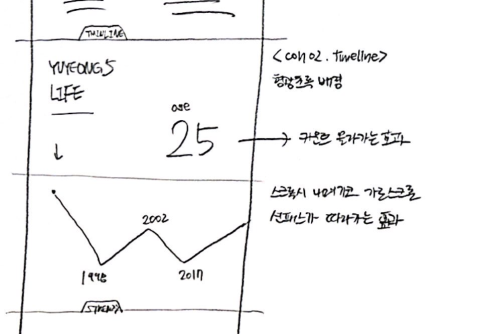 TIMELINE
YUYEONG'S
LIFE
age
25
<con 02. Timeline>
형광초록 배경
카운트 올라가는 효과
스크롤시 나머지고 가로스크롤
선피스가 따라가는 효과
2002
1998
2017